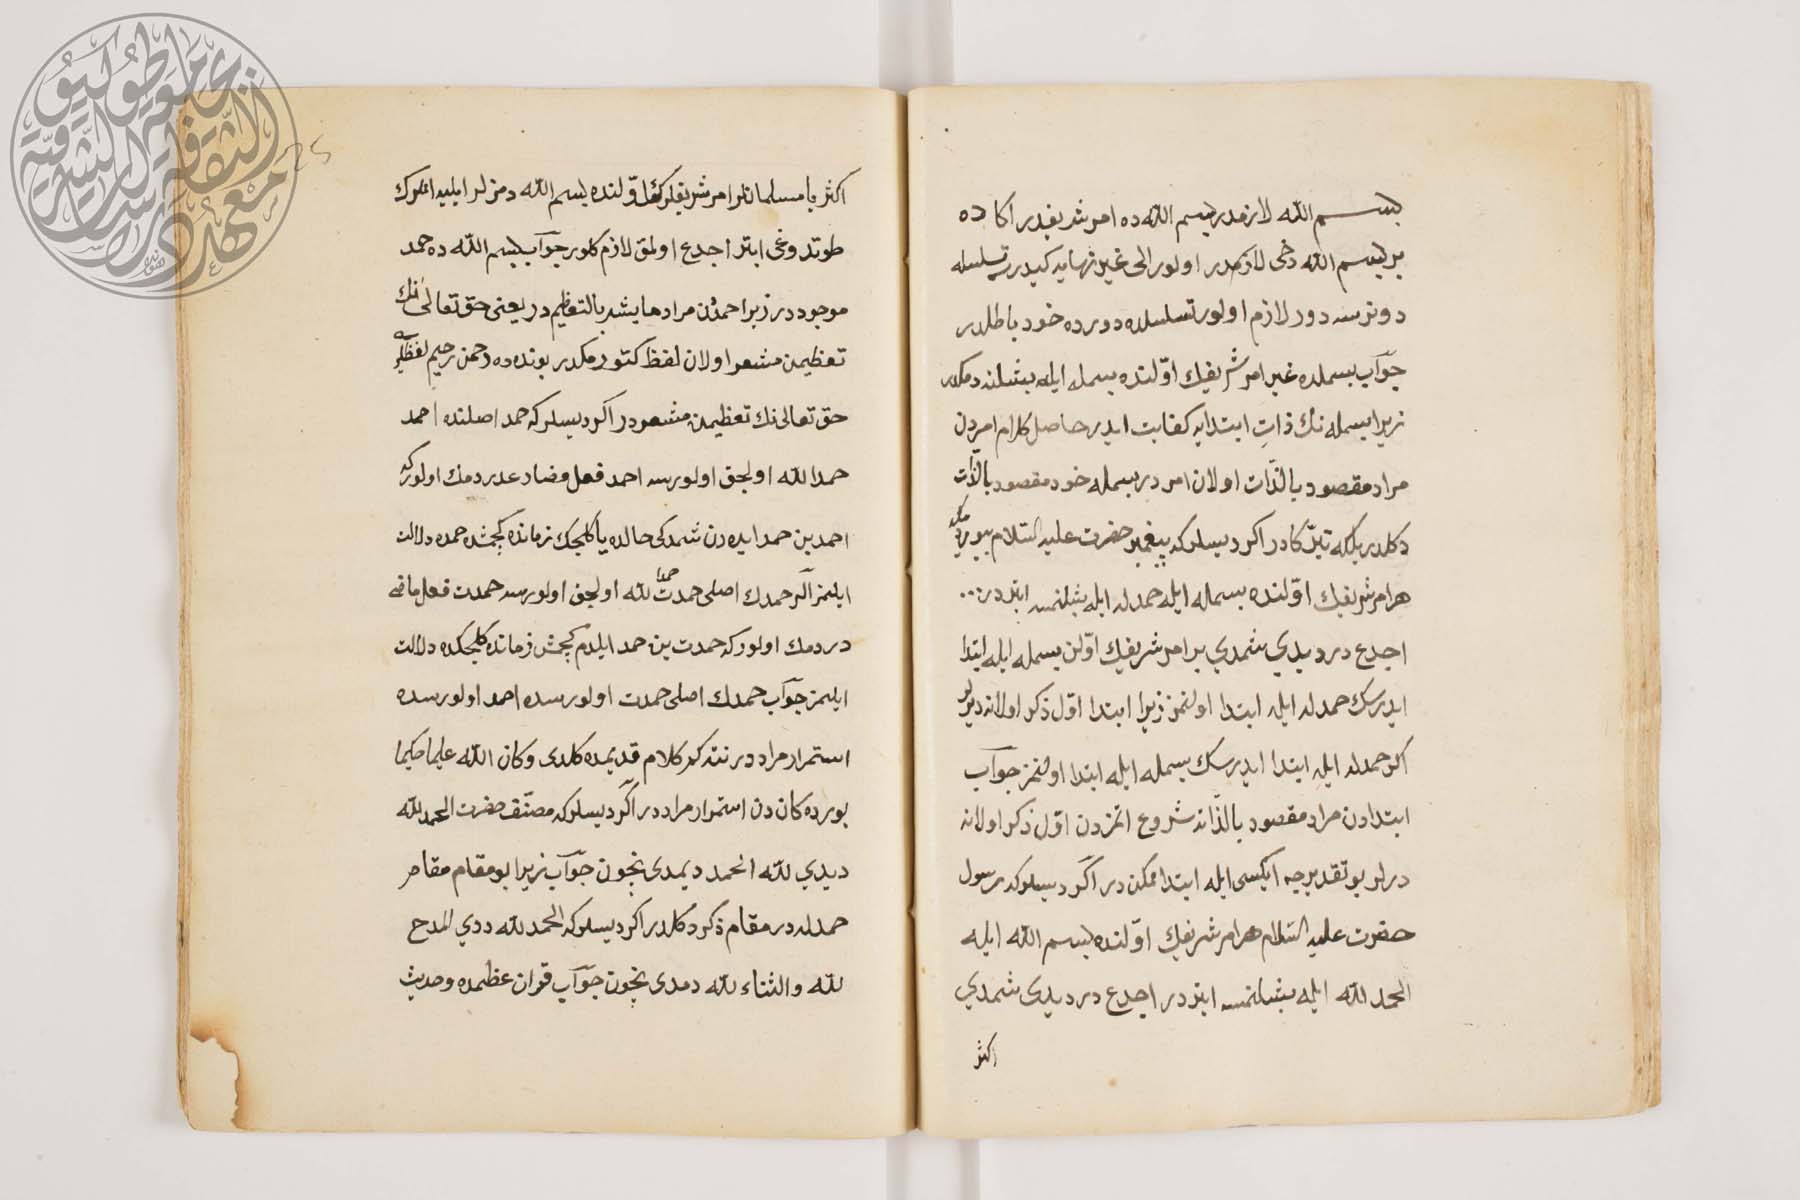 بسم الله لازمدر بسم الله ده امر شريفدر اكا ده
بر بسم الله دخى لازمدر اولور الى غير نهايه كيدرسه تسلسله
دونرسه دور لازم اولور تسلسلده دورده خود باطلدر
جواب بسمله ده غير امر شريفك اوّلنده بسمله ايله بشلنه دمكدر
زيرا بسمله نك ذاتِ ابتدايه كفايت ايدر حاصل كلام امردن
مراد مقصود بالذّات اولان امر در بسمله خود مقصود بالذّات
دكلدر بلكه تبرّكا در اكر ديسلركه پيغمبر حضرت عليه السّلام بيوردى
هر امر شريفك اوّلنده بسمله ايله حمدله ايله بشلنمسه ابتر در
اجدع در ديدي شمدي بر امر شريفك اوّلن بسمله ايله ابتدا
ايدرسك حمدله ايله ابتدا اولنمز زيرا ابتدا اوّل ذكر اولانه ديرلر
اكر حمدله ايله ابتدا ايدرسك بسمله ايله ابتدا اولنمز جواب
ابتدادن مراد مقصود بالذّاته شروع اتمزدن اوّل ذكر اولانه
درلر بو تقديرجه ايكسى ايله ابتدا ممكن در اكر ديسلركه رسول
حضرت عليه السّلام هر امر شريفك اوّلنده بسم الله ايله
الحمد لله ايله بشلنمسه ابتر در اجدع در ديدى شمدي
اكثر
25
اكثر يا مسلمانلر امر شريفلرك اوّلنده بسم الله دمزلر ايليه انلرك
طوتدوغى ابتر اجدع اولمق لازم كلور جواب بسم الله ده حمد
موجود در زيرا حمدن مراد ما يشعر بالتعظيم در يعنى حق تعالى نك
تعظيمن مشعر اولان لفظ كتور دمكدر بونده ده رحمن رحيم لفظلرى
حق تعالى نك تعظيمن مشعر در اكر ديسلركه حمد اصلنده احمد
حمدا لله اولجق اولورسه احمد فعل مضارعدر دمك اولوركه
احمد بن حمد ايده رن شمدكى حالده يا كلجك زمانده كچمشده حمده دلالت
ايلمز اكر حمدك اصلى حمدت حمدا لله اولجق اولورسه حمدت فعل ماضى
در دمك اولوركه حمدت بن حمد ايلدم كچمش زمانده كلجكده دلالت
ايلمز جواب حمدك اصلى حمدت اولورسده احمد اولورسده
استمرار مراد در نته كه كلام قديمده كلدى وكان الله عليما حكيما
بورده كان دن استمرار مراد در اكر ديسلركه مصنّف حضرت الحمد لله
ديدي لله الحمد ديمدى نچون جواب زيرا بو مقام مقام
حمدله در مقام ذكر دكلدر اكر ديسلركه الحمد لله ددي المدح
لله والثناء لله دمدى نچون جواب قران عظمده وحديث